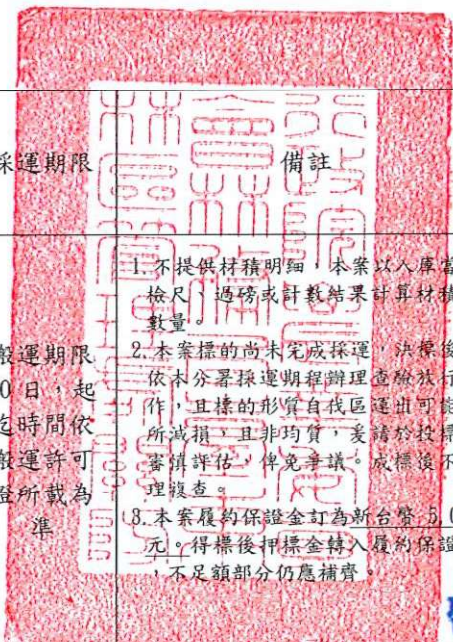 採運期限
備註
搬運期限
0日，起
迄時間依
搬運許可
證所載為
準
1. 不提供材積明細，本案以入庫當
檢尺、過磅或計數結果計算材積
數量。
2. 本案標的尚未完成採運，決標後
依本分署採運期程辦理查驗放行
作，且標的形質自伐區運出可能
所減損，且非均質，爰請於投標
審慎評估，俾免爭議。成標後不
理複查。
3. 本案履約保證金訂為新台幣 5,0
元。得標後押標金轉入履約保證
，不足額部分仍應補齊。